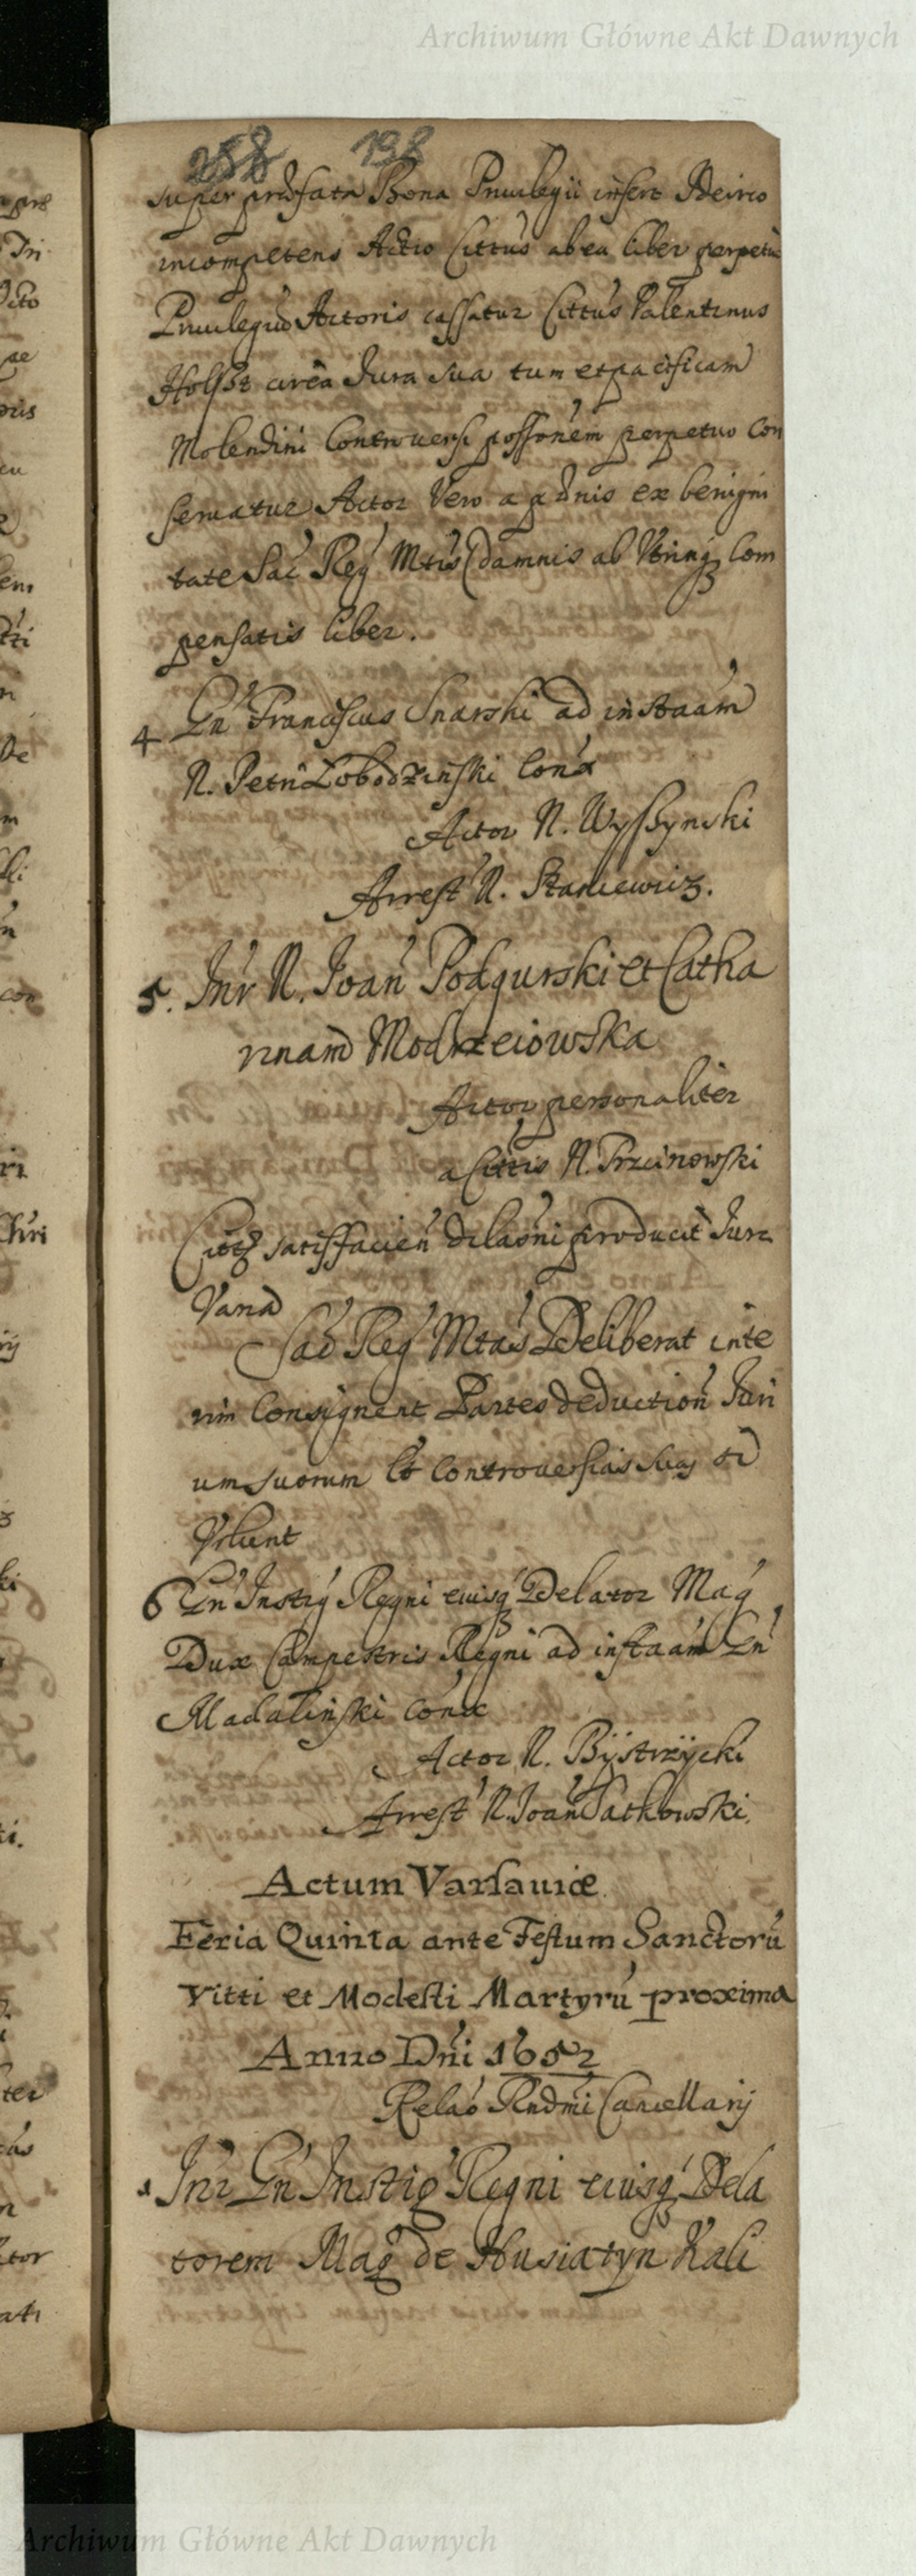 Archiwum Główne Akt Dawnych
258 198
super praefata Bona Priuilegii insert Ideirco
incompetens Actio Cittus ab ea liber perpetuo
Priuilegiũ Actoris cassatur Cittus Valentinus
Holszt circa Jura sua tum et pacificam
Molendini Controuersi possonem perpetuo con
seruatur Actor Vero a paenis ex benigni
tate Sac Reg Mtis damnis ab Vtrinq Com
pensatis liber.
4 Gn Franciscus Snarski ad instaam
N. Petri Lobodzinski Cona
Actor N. Wyssynski
Arrest N. Staniewicz.
5. Inr N. Joan Podgurski et Catha
rinam Modrzeiowska
Actor personaliter
a Cittis N. Przcinowski
Citt satisfacien dilaoni producit Jura
Varia
Sac Reg Mtas Deliberat inte
rim Consignent Partes deduction Juri
um suorum et Controuersias suas si
Volunt
6 Gn Instig Regni eiusq Delator Mag
Dux Campestris Regni ad instaam Gn
Madalinski Cona
Actor N. Bÿstrzÿcki
Arrest N. Joan Satkowski.
Actum Varsauiæ
Feria Quinta ante Festum Sanctorũ
Vitti et Modesti Martyrũ proxima
Anno Dni 1652
Relao Rndmi Cancellarij
1 Inr Gn Instig Regni eiusq Dela
torem Mag de Husiatyn Kali
Archiwum Główne Akt Dawnych